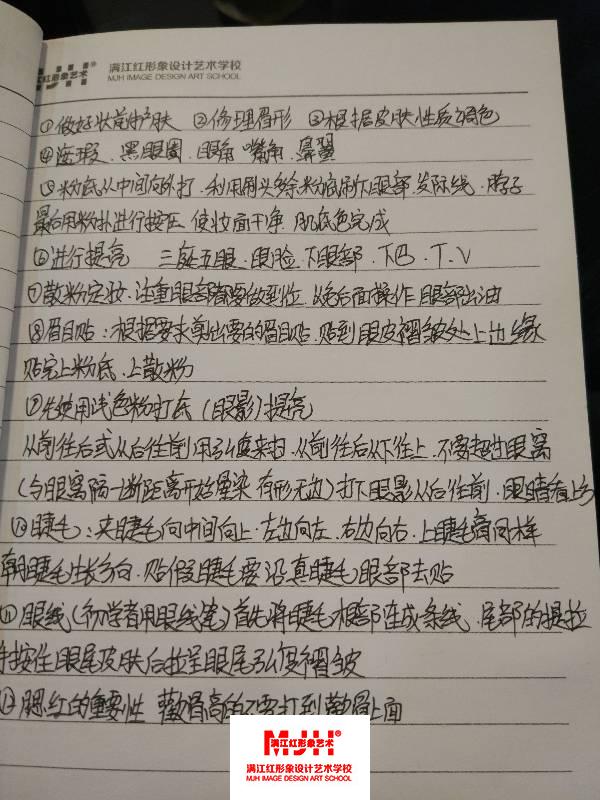 江红形象艺术®
满江红形象设计艺术学校
MJH IMAGE DESIGN ART SCHOOL
①做好妆前护肤 ②修理眉形 ③根据皮肤性质调色
④遮瑕、黑眼圈、眼角、嘴角、鼻翼
⑤粉底从中间向外打、利用刷头多余粉底刷下眼部、发际线、脖子
最后用粉扑进行按压、使妆面干净、肌底色完成
⑥进行提亮 三庭五眼、眼脸、下眼部、下巴、T、V
⑦散粉定妆:注重眼部都要做到位、以免后面操作眼部出油
⑧眉目贴:根据要求剪出要的眉目贴、贴到眼皮褶皱处上边缘
贴完上粉底、上散粉
⑨先使用浅色粉打底(眼影)提亮
从前往后或从后往前用弧度来扫、从前往后从下往上、不要超出眼窝
(与眼窝隔一断距离开始晕染 有形无边)打下眼影从后往前、眼睛看上方
⑩睫毛:夹睫毛向中间向上、左边向左、右边向右、上睫毛膏同样
朝睫毛生长方向、贴假睫毛要沿真睫毛眼部去贴
⑪眼线(初学者用眼线笔)首先将睫毛根部连成条线、尾部的提拉
手按住眼尾皮肤后拉呈眼尾弧度褶皱
⑫腮红的重要性 颧骨高的不要打到颧骨上面
MJH
满江红形象艺术
满江红形象设计艺术学校
MJH IMAGE DESIGN ART SCHOOL